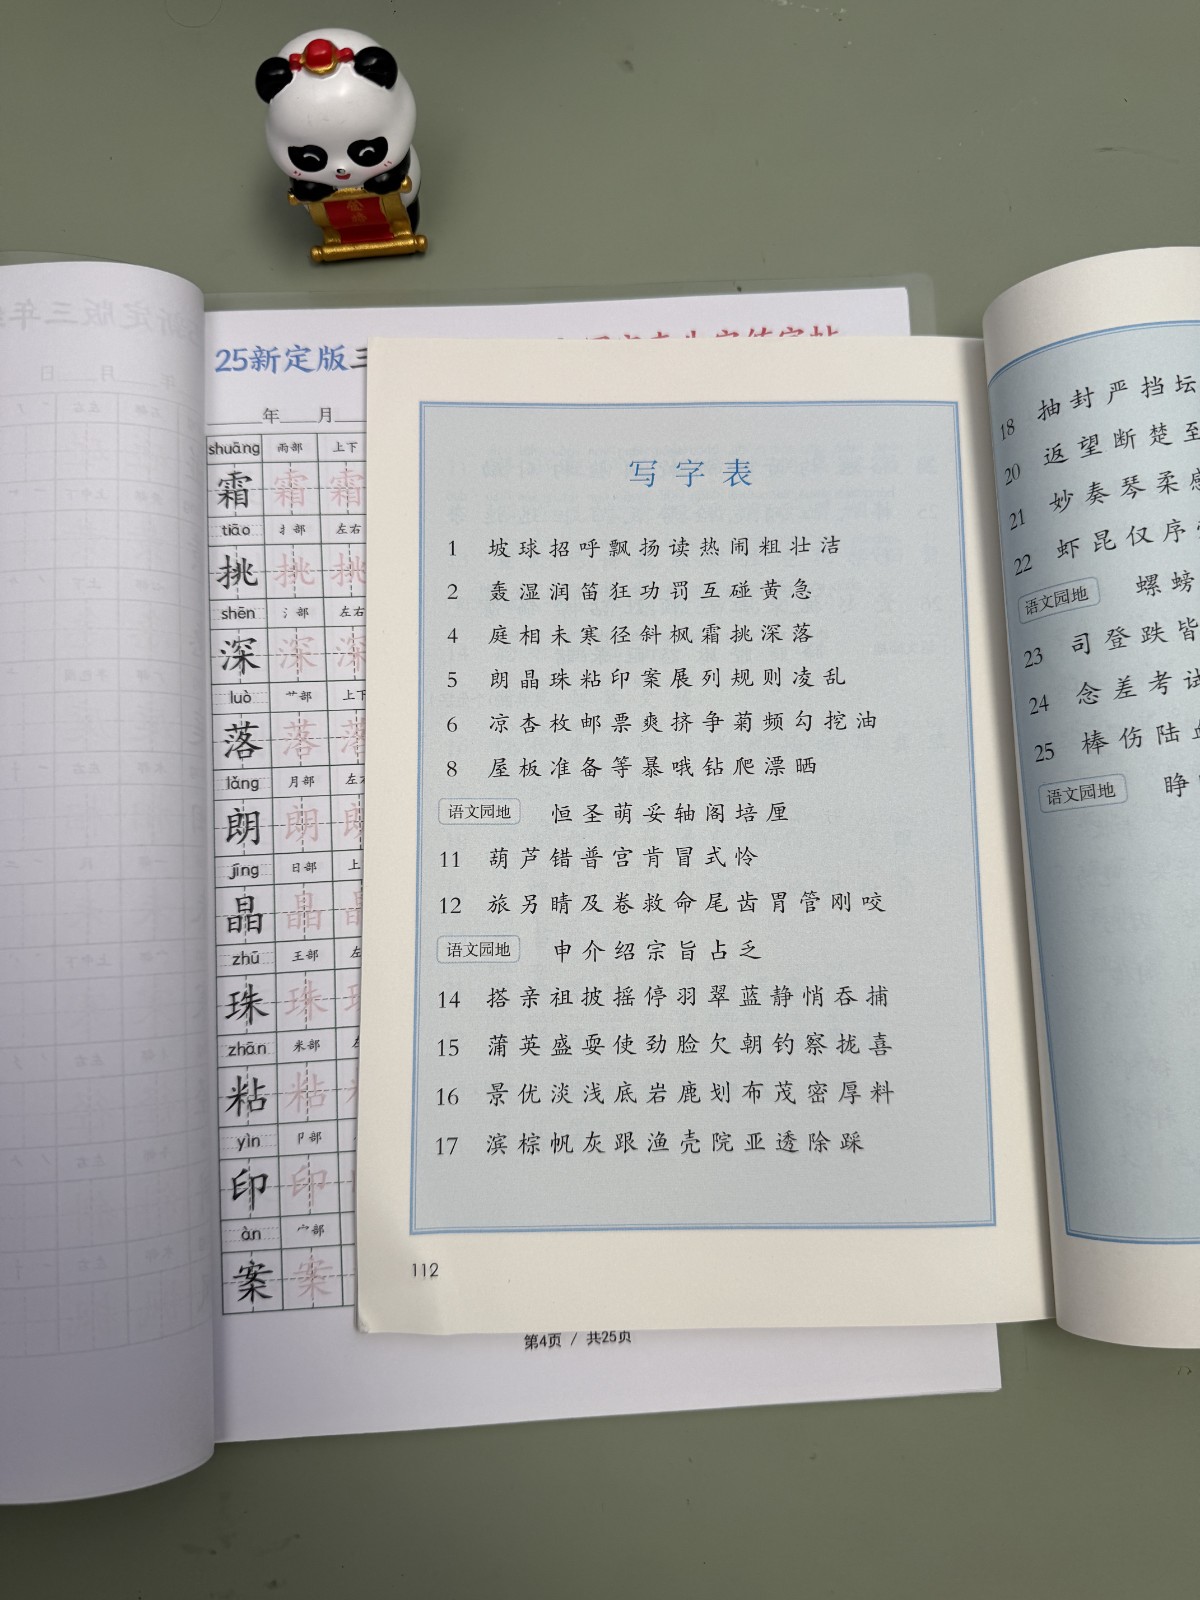 25新定版三
年 月
shuāng 雨部 上下
霜 霜 霜
tiāo 扌部 左右
挑 挑 挑
shēn 氵部 左右
深 深 深
luò 艹部 上下
落 落 落
lǎng 月部
朗 朗
jīng 日部 上
晶 晶
zhū 王部
珠 珠
zhān 米部
粘 粘
yìn 卩部
印 印
àn 宀部
案 案
第4页 / 共25页
写字表
1 坡球招呼飘扬读热闹粗壮洁
2 轰湿润笛狂功罚互碰黄急
4 庭相未寒径斜枫霜挑深落
5 朗晶珠粘印案展列规则凌乱
6 凉杏枚邮票爽挤争菊频勾挖油
8 屋板准备等暴哦钻爬漂晒
语文园地 恒圣萌妥轴阁培厘
11 葫芦错普宫肯冒式怜
12 旅另睛及卷救命尾齿胃管刚咬
语文园地 申介绍宗旨占乏
14 搭亲祖披摇停羽翠蓝静悄吞捕
15 蒲英盛耍使劲脸欠朝钓察拢喜
16 景优淡浅底岩鹿划布茂密厚料
17 滨棕帆灰跟渔壳院亚透除踩
112
18 抽封严挡坛
20 返望断楚至
21 妙奏琴柔感
22 虾昆仅序
语文园地 螺螃
23 司登跌皆
24 念差考试
25 棒伤陆血
语文园地 睁